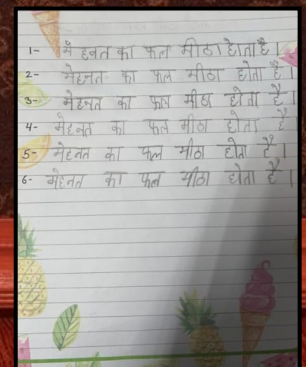 1- मैहनत का फल मीठा होता है।
2- मेहनत का फल मीठा होता है।
3- मेहनत का फल मीठा होता है।
4- मेहनत का फल मीठा होता है
5- मेहनत का फल मीठा होता है।
6- मेहनत का फल मीठा होता है।